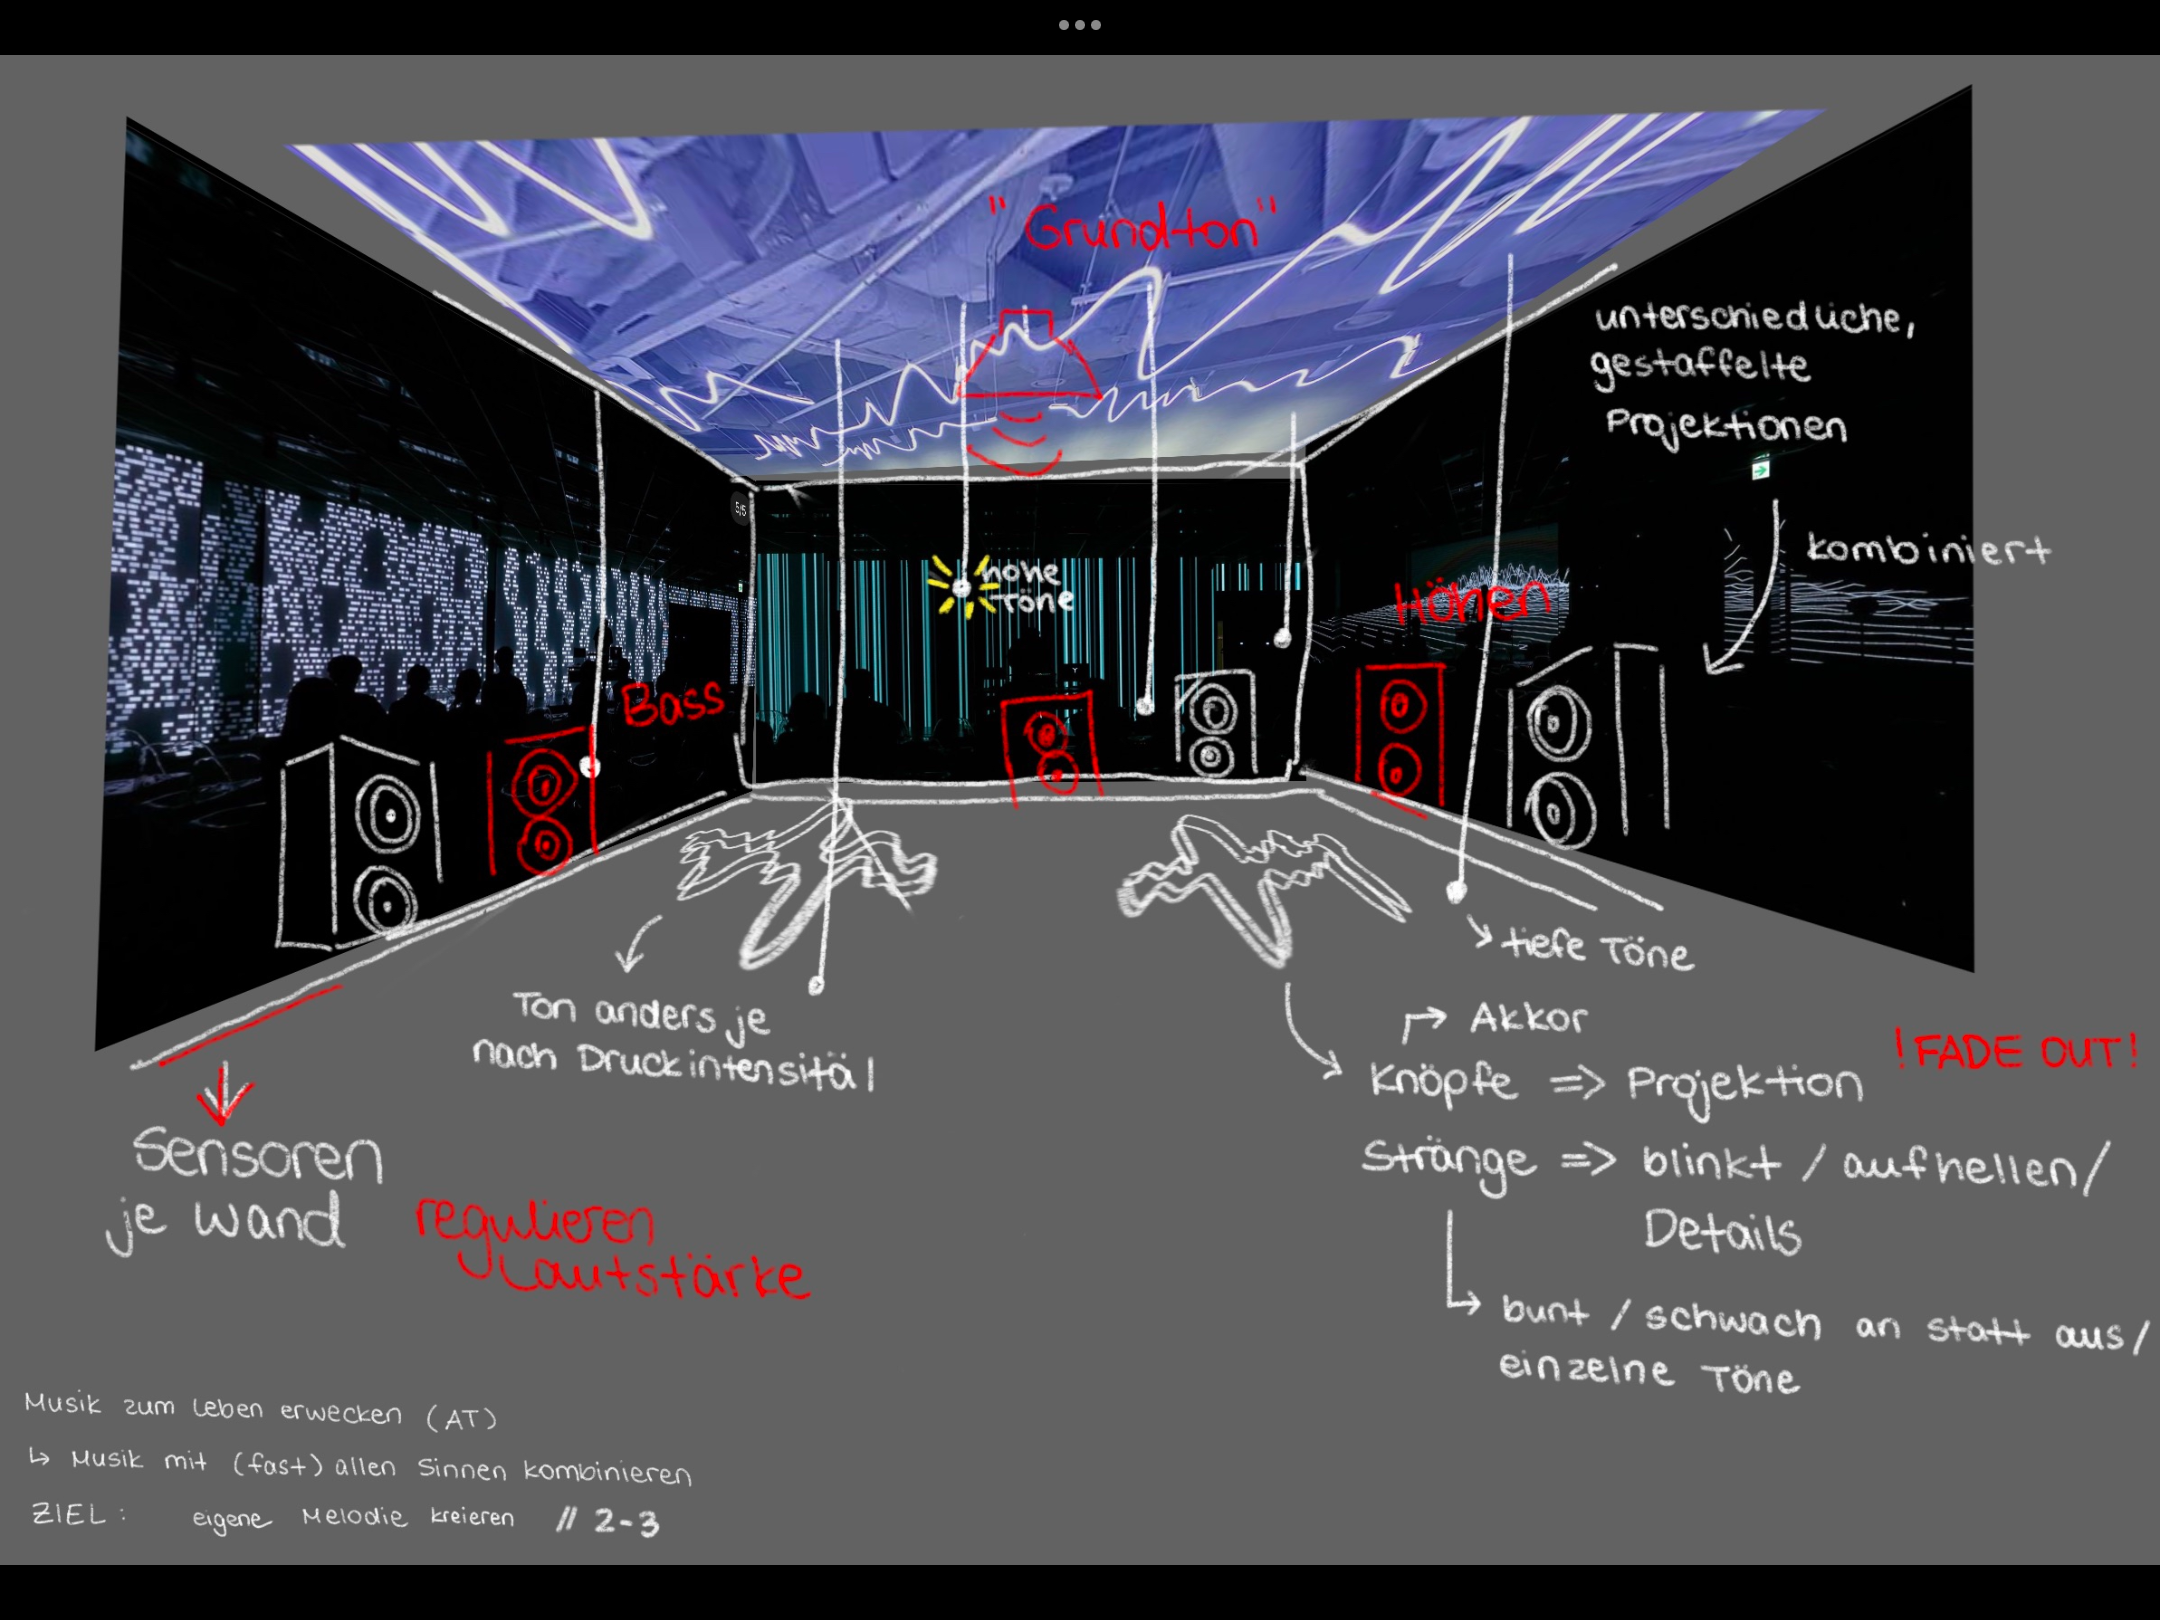 "Grundton"
unterschiedliche,
gestaffelte
Projektionen
kombiniert
hohe
Töne
Höhen
Bass
tiefe Töne
Ton anders je
nach Druckintensität
Akkor
Knöpfe => Projektion
! FADE OUT!
Stränge => blinkt / aufhellen/
Details
bunt / schwach an statt aus/
einzelne Töne
Sensoren
je Wand
regulieren
Lautstärke
Musik zum Leben erwecken (AT)
↳ Musik mit (fast) allen Sinnen kombinieren
ZIEL: eigene Melodie kreieren // 2-3